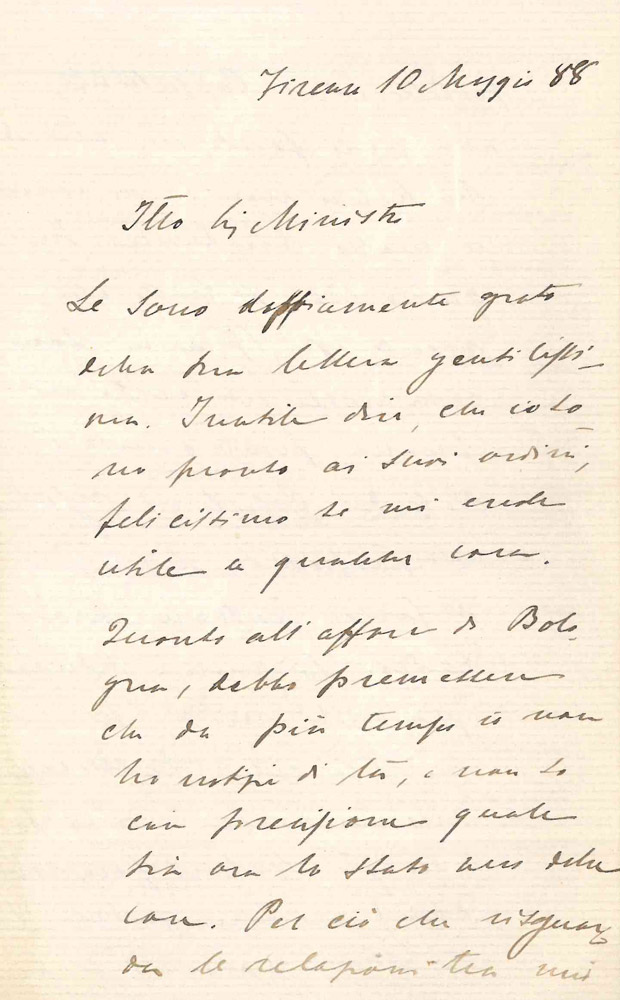 Firenze 10 Maggio 88
Illo Sig Ministro
Le sono doppiamente grato
della sua lettera gentilissi-
ma. Inutile dire, che io so
no pronto ai suoi ordini,
felicissimo se mi crede
utile a qualche cosa.
Quanto all'affare di Bolo-
gna, debbo premettere
che da più tempo io non
ho notizie di là, e non so
con precisione quale
sia ora lo stato vero delle
cose. Pel ciò che risguar
da le relazioni tra mio